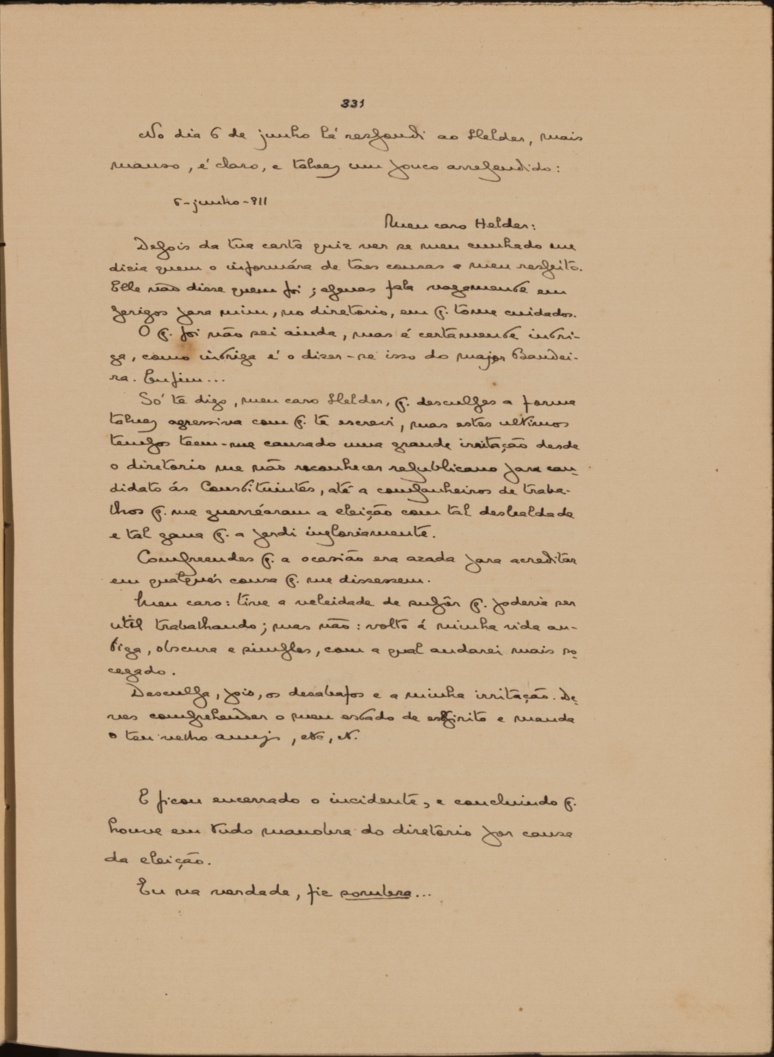 331
No dia 6 de junho lá respondi ao Helder, mais
manso, é claro, e talvez um pouco arrependido:
6-junho-911
Meu caro Helder:
Depois da tua carta quiz ver se meu cunhado me
dizia quem o informára de taes cousas a meu respeito.
Elle não disse quem foi; apenas fala vagamente em
perigos para mim, no diretorio, em q. tome cuidados.
O q. foi não sei ainda, mas é certamente intri-
ga, como intriga é o dizer-se isso do major Bandei-
ra. Enfim...
Só te digo, meu caro Helder, q. desculpes a forma
talvez agressiva com q. te escrevi, mas estes ultimos
tempos teem-me causado uma grande irritação desde
o diretorio me não reconhecer republicano para can-
didato ás Constituintes, até a companheiros de traba-
lhos q. me guerréaram a eleição com tal deslealdade
e tal gana q. a perdi ingloriamente.
Compreendes q. a ocasião era azada para acreditar
em qualquér cousa q. me dissessem.
Meu caro: tive a veleidade de supôr q. poderia ser
util trabalhando; mas não: volto á minha vida an-
tiga, obscura e simples, com a qual andarei mais so-
cegado.
Desculpa, pois, os desabafos e a minha irritação. De-
ves comprehender o meu estado de espirito e manda
o teu velho amigo, etc, etc.
E ficou encerrado o incidente, e concluindo q.
houve em tudo manobra do diretorio por causa
da eleição.
Eu na verdade, fiz sombra...